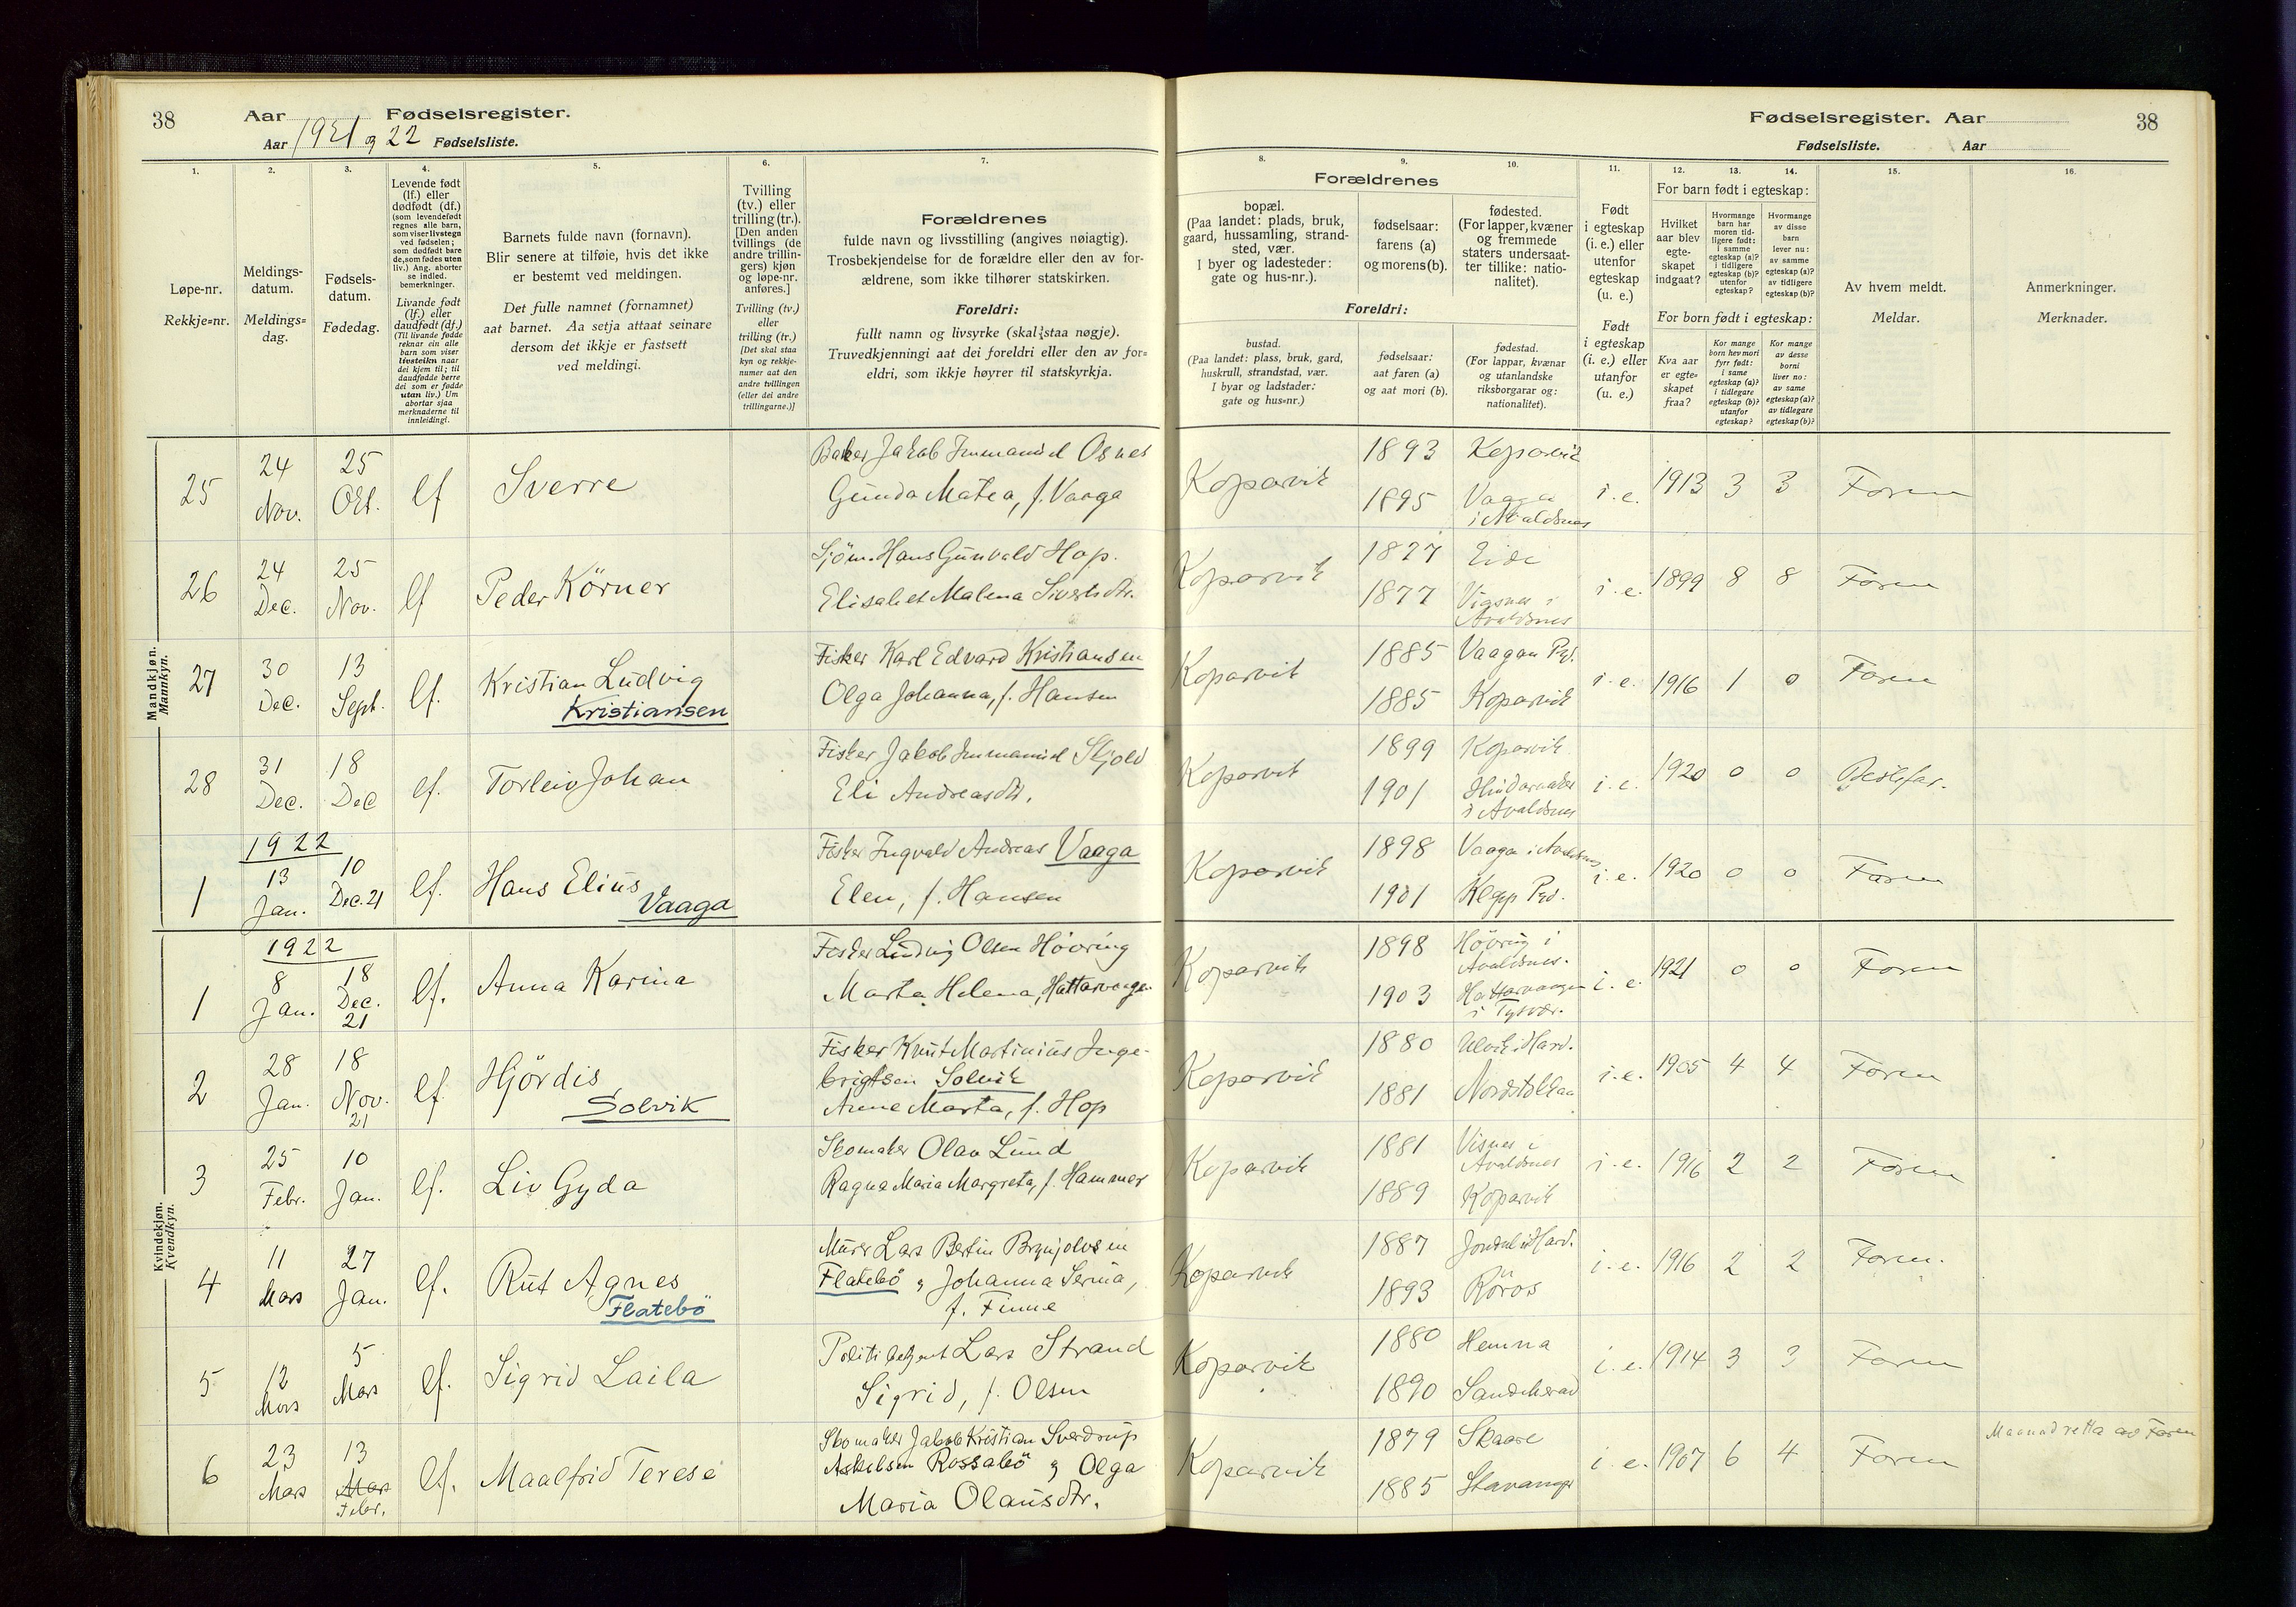 38
Aar
Fødselsregister.
Aar 1921 og 22 Fødselsliste.
1.
2.
3.
4.
5.
6.
7.
Løpe-nr.
Rekkje=nr.
Meldings-
datum.
Meldings=
dag.
Fødsels-
datum.
Fødedag.
Levende født
(lf.) eller
dødfødt (df.)
(som levendefødt
regnes alle barn,
som viser livstegn
ved fødselen;
som dødfødt bare
de, som fødes uten
liv.) Ang. aborter
se indled.
bemerkninger.
Livande født
(lf.) eller
daudfødt (df.)
(Til livande fødde
reknar ein alle
barn som viser
livsteikn naar
dei kjem til; til
daudfødde berre
dei som er fødde
utan liv.) Um
abortar sjaa
merknaderne til
innleidingi.
Barnets fulde navn (fornavn).
Blir senere at tilføie, hvis det ikke
er bestemt ved meldingen.
Det fulle namnet (fornamnet)
aat barnet. Aa setja attaat seinare
dersom det ikkje er fastsett
ved meldingi.
Tvilling
(tv.) eller
trilling (tr.).
[Den anden
tvillings (de
andre trillin-
gers) kjøn
og løpe-nr.
anføres.]
Tvilling (tv.)
eller
trilling (tr.)
[Det skal staa
kyn og rekkje-
numer aat den
andre tvillingen
(eller dei andre
trillingarne.)]
Forældrenes
fulde navn og livsstilling (angives nøiagtig).
Trosbekjendelse for de forældre eller den av for-
ældrene, som ikke tilhører statskirken.
Foreldri:
fullt namn og livsyrke (skal staa nøgje).
Truvedkjenningi aat dei foreldri eller den av for=
eldri, som ikkje høyrer til statskyrkja.
Mandkjøn.
Mannkyn.
25
24
Nov.
25
Okt.
lf
Sverre
Baker Jakob Immanuel Osnes
Gunda Matea, f. Vaaga
26
24
Dec.
25
Nov.
lf
Peder Körner
Sjöm. Hans Gunvald Hop.
Elisabet Malena Sivertsdtr.
27
30
Dec.
13
Sept.
lf.
Kristian Ludvig
Kristiansen
Fisker Karl Edvard Kristiansen
Olga Johanna, f. Hansen
28
31
Dec.
18
Dec
lf.
Torleiv Johan
Fisker Jakob Immanuel Skjold
Eli Andreasdtr.
1922
1
13
Jan.
10
Dec. 21
lf.
Hans Elius
Vaaga
Fisker Ingvald Andreas Vaaga
Elen, f. Hansen
Kvindekjøn.
Kvendkyn.
1922
1
8
Jan.
18
Dec.
21
lf.
Anna Karina
Fisker Ludvig Olsen Hövring
Marta Helena, Hattarvaagen
2
28
Jan.
18
Nov.
21
lf
Hjördis
Solvik
Fisker Knut Martinius Inge-
brigtsen Solvik
Anne Marta, f. Hop
3
25
Febr.
10
Jan.
lf.
Liv Gyda
Skomaker Olav Lund
Ragna Maria Margreta, f. Hammer
4
11
Mars
27
Jan.
lf.
Rut Agnes
Flatebö
Murer Lars Bertin Brynjolvsen
Flatebö og Johanna Serina,
f. Finne
5
12
Mars
5
Mars
lf.
Sigrid Laila
Politibetjent Lars Strand
Sigrid, f. Olsen
6
23
Mars
13
Mars
Febr.
lf.
Maalfrid Terese
Skomaker Jakob Kristian Sverdrup
Askelsen Rossabö og Olga
Maria Olausdtr.
Fødselsregister. Aar
38
Fødselsliste. Aar
8.
9.
10.
11.
12.
13.
14.
15.
16.
Forældrenes
bopæl.
(Paa landet: plads, bruk,
gaard, hussamling, strand-
sted, vær.
I byer og ladesteder:
gate og hus-nr.).
fødselsaar:
farens (a)
og morens (b).
fødested.
(For lapper, kvæner
og fremmede
staters undersaat-
ter tillike: natio-
nalitet).
Foreldri:
bustad.
(Paa landet: plass, bruk, gard,
huskrull, strandstad, vær.
I byar og ladstader:
gate og hus=nr.)
fødselsaar:
aat faren (a)
og aat mori (b).
fødestad.
(For lappar, kvænar
og utanlandske
riksborgarar og:
nationalitet).
Født
i egteskap
(i. e.) eller
utenfor
egteskap
(u. e.)
Født
i egteskap
(i. e.) eller
utanfor
(u. e.)
For barn født i egteskap:
Hvilket
aar blev
egte-
skapet
indgaat?
Hvormange
barn har
moren tid-
ligere født:
i samme
egteskap (a)?
i tidligere
egteskap (b)?
utenfor
egteskap?
Hvormange
av disse
barn
lever nu:
av samme
egteskap (a)?
av tidligere
egteskap (b)?
For born født i egteskap:
Kva aar
er egte=
skapet
fraa?
Kor mange
born hev mori
fyrr født:
i same
egteskap (a)?
i tidlegare
egteskap (b)?
utanfor
egteskap?
Kor mange
av desse
borni
liver no:
av same
egteskap (a)?
av tidlegare
egteskap (b)?
Av hvem meldt.
Meldar.
Anmerkninger.
Merknader.
Koparvik
1893
1895
Koparvik
Vaaga
i Avaldsnes
i. e.
1913
3
3
Faren
Koparvik
1877
1877
Eide
Vigsnes i
Avaldsnes
i. e.
1899
8
8
Faren
Koparvik
1885
1885
Vaagan Pgd.
Koparvik
i. e.
1916
1
0
Faren
Koparvik
1899
1901
Koparvik
i Avaldsnes
i. e.
1920
0
0
Bestefar.
Koparvik
1898
1901
Vaaga i Avaldsnes
Klepp Pgd.
i. e.
1920
0
0
Faren
Koparvik
1898
1903
Hövring i
Avaldsnes.
Hattarvaagen
i Tysvær.
i. e.
1921
0
0
Faren
Koparvik
1880
1881
Ulvik i Hard.
i. e.
1905
4
4
Faren
Koparvik
1881
1889
Visnes i
Avaldsnes
Koparvik
i. e.
1916
2
2
Faren
Koparvik
1887
1893
Jondal i Hard.
Röros
i. e.
1916
2
2
Faren.
Koparvik
1880
1890
Hemna
i. e.
1914
3
3
Faren
Koparvik
1879
1885
Skaare
Stavanger
i. e.
1907
6
4
Faren
Maanad retta av Faren